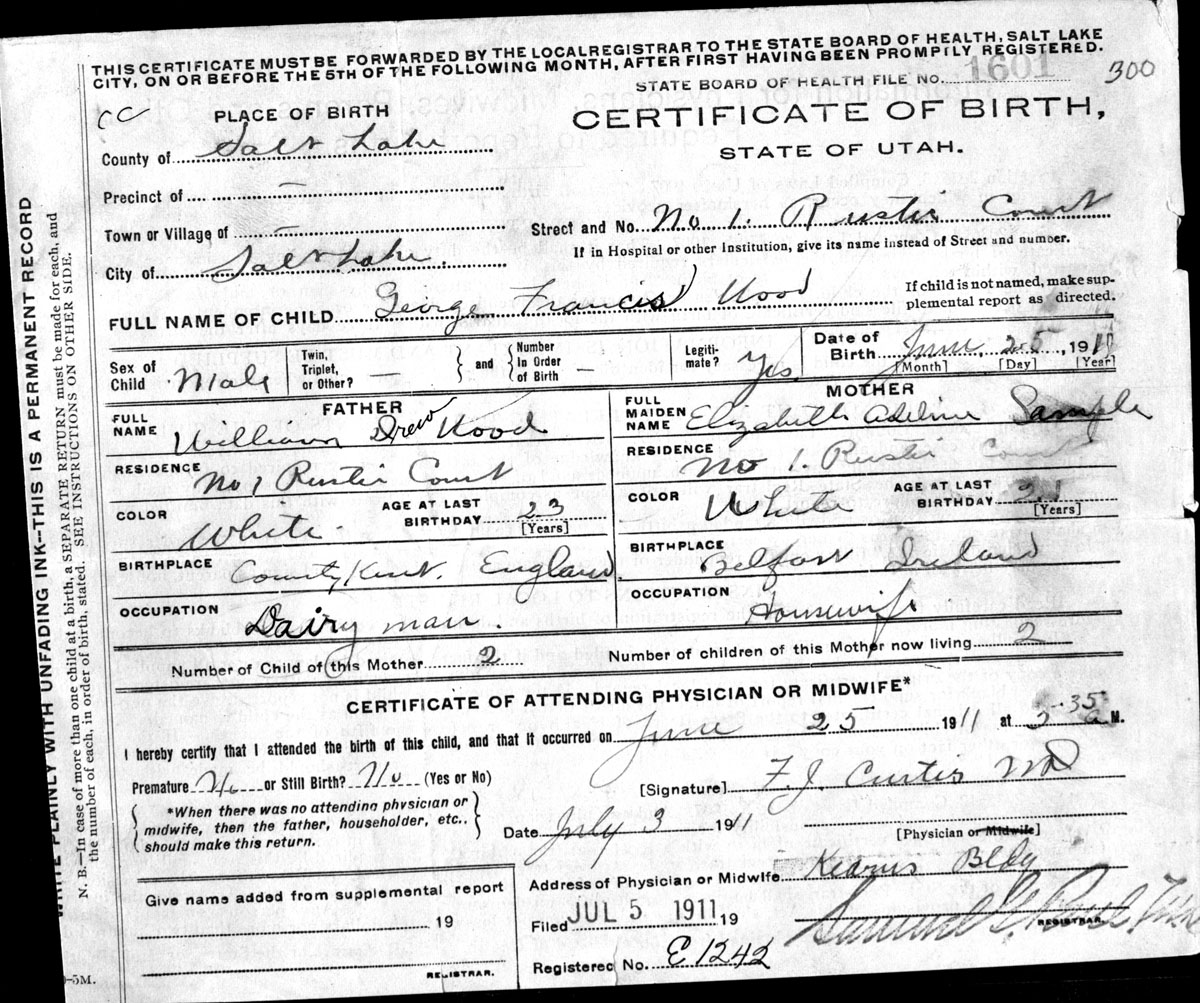 THIS CERTIFICATE MUST BE FORWARDED BY THE LOCALREGISTRAR TO THE STATE BOARD OF HEALTH, SALT LAKE
CITY, ON OR BEFORE THE 5TH OF THE FOLLOWING MONTH, AFTER FIRST HAVING BEEN PROMPTLY REGISTERED.
STATE BOARD OF HEALTH FILE NO. 1601
300
CC
PLACE OF BIRTH
CERTIFICATE OF BIRTH,
STATE OF UTAH.
County of Salt Lake
Precinct of —
Town or Village of —
Street and No. No 1. Rustic Court
If in Hospital or other Institution, give its name instead of Street and number.
City of Salt Lake
FULL NAME OF CHILD George Francis Wood
If child is not named, make sup-
plemental report as directed.
Sex of Child Male
Twin, Triplet, or Other? —
and
Number In Order of Birth —
Legiti- mate? Yes
Date of Birth June 25, 1911
[Month] [Day] [Year]
FATHER
FULL NAME William Drew Wood
RESIDENCE No 1 Rustic Court
COLOR White
AGE AT LAST BIRTHDAY 23 [Years]
BIRTHPLACE County Kent. England
OCCUPATION Dairy man
MOTHER
FULL MAIDEN NAME Elizabeth Adeline Sample
RESIDENCE No 1. Rustic Court
COLOR White
AGE AT LAST BIRTHDAY 21 [Years]
BIRTHPLACE Belfast Ireland
OCCUPATION Housewife
Number of Child of this Mother 2
Number of children of this Mother now living 2
CERTIFICATE OF ATTENDING PHYSICIAN OR MIDWIFE*
I hereby certify that I attended the birth of this child, and that it occurred on June 25 1911 at 35 a M.
Premature No or Still Birth? No (Yes or No)
[Signature] F. J. Curtis MD
*When there was no attending physician or
midwife, then the father, householder, etc.,
should make this return.
Date July 3 1911
[Physician or Midwife]
Address of Physician or Midwife Kearns Bldg
Give name added from supplemental report
19
REGISTRAR.
Filed JUL 5 1911 19
Samuel G. Paul
REGISTRAR.
Registered No. E 1242
-5M.
WRITE PLAINLY WITH UNFADING INK--THIS IS A PERMANENT RECORD
N. B.—In case of more than one child at a birth, a SEPARATE RETURN must be made for each, and
the number of each, in order of birth, stated. SEE INSTRUCTIONS ON OTHER SIDE.